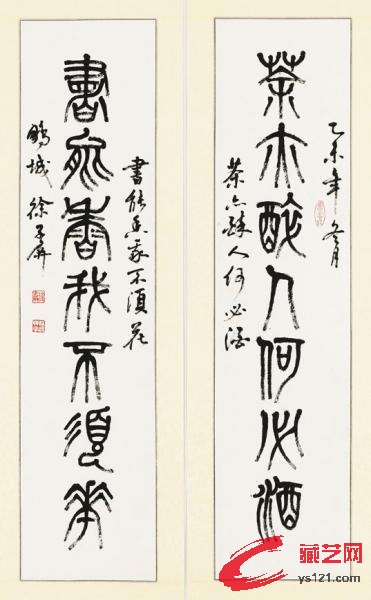 乙未年 冬月
茶亦醉人何必酒
茶亦醉人何必酒
書能香我不須花
書能香我不須華
鵬城 徐
藏艺网
ys121.com